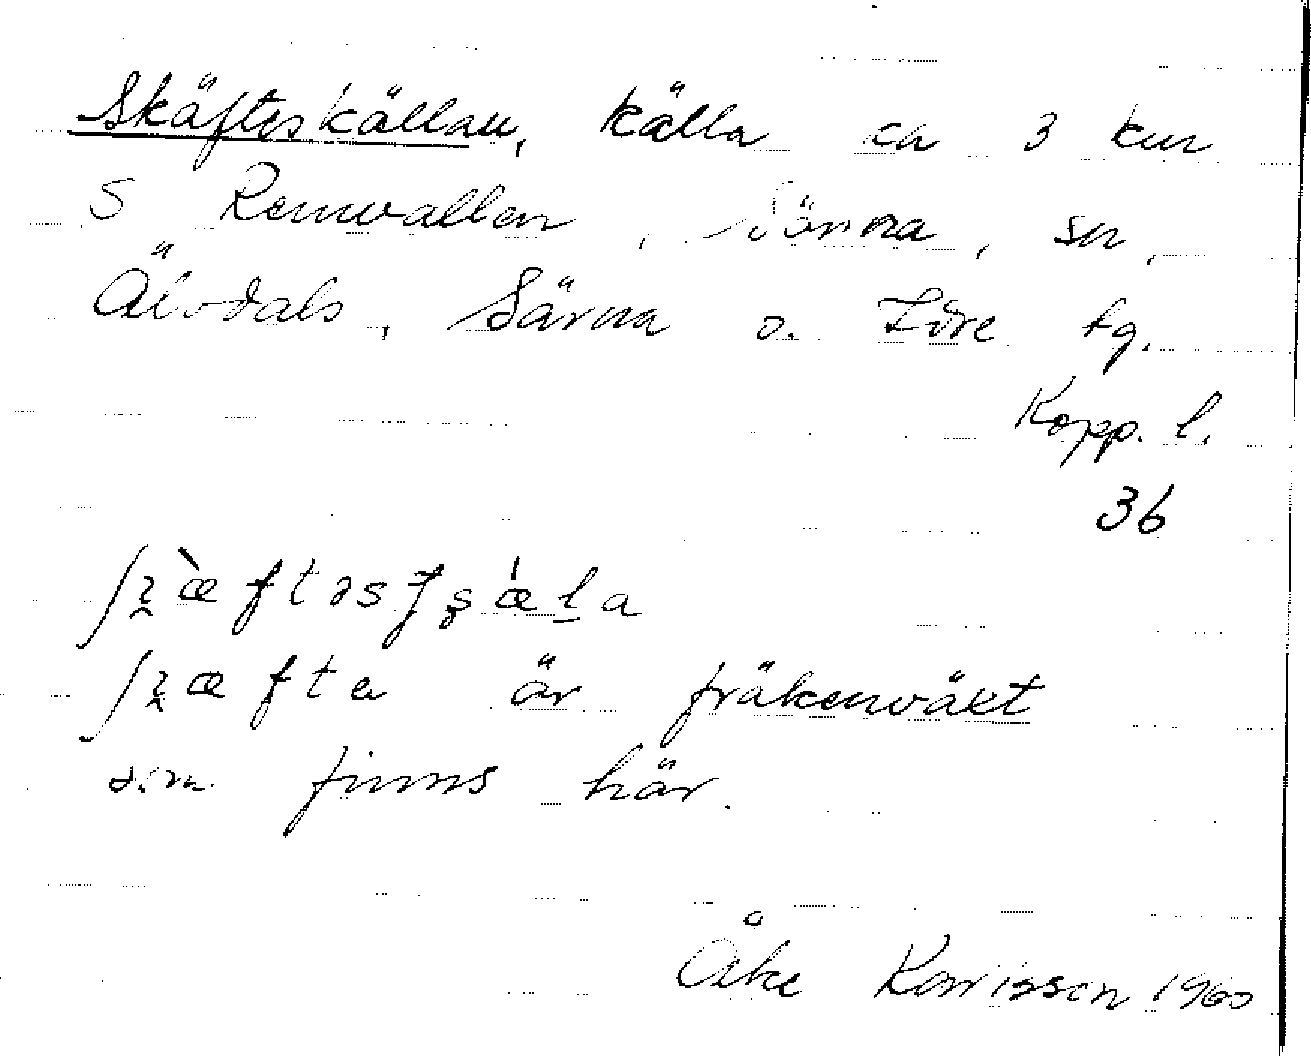 Skäfteskällan, källa ca 3 km
S Remvallen, Särna, sn,
Älvdals, Särna o. Idre tg.
Kopp. l.
36
är fräkenväxt
som finns här.
Åke Karrisson 1960